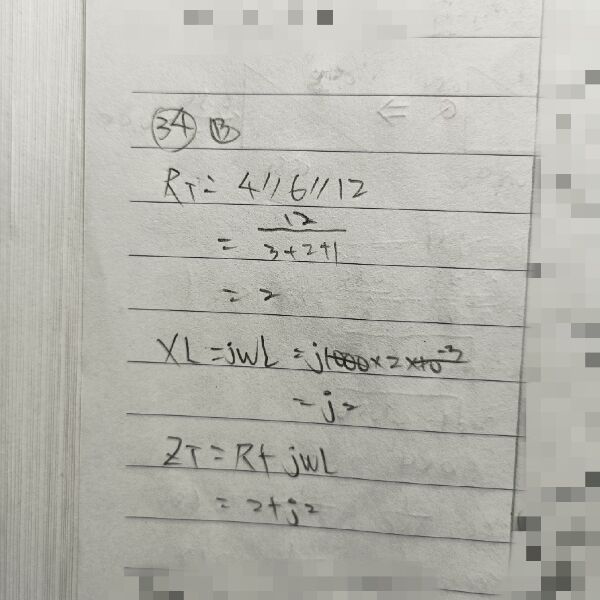 34 B
RT = 4//6//12
= 12/(3+2+1)
= 2
XL = jwL = j1000×2×10^-3
= j2
ZT = R+jwL
= 2+j2